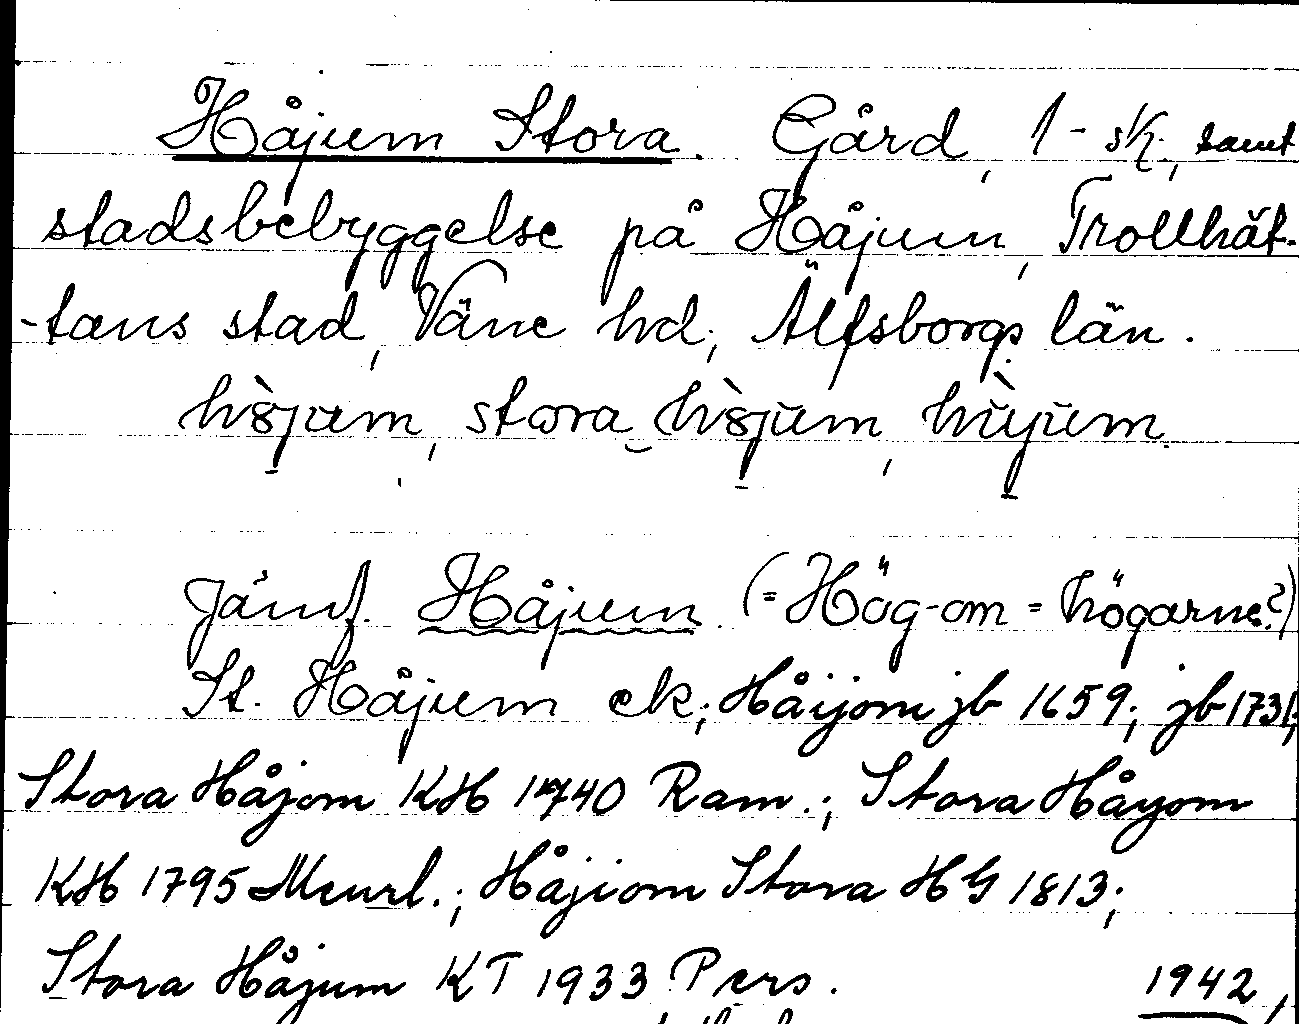 Håjum Stora. Gård, 1-sk., samt
stadsbebyggelse på Håjum, Trollhät-
-tans stad, Väne hd; Älfsborgs län.
stora
Jämf. Håjum (= Hög-om = högarne?)
St. Håjum ek; Håijom jb 1659; jb 1731;
Stora Håjom KH 1740 Ram.; Stora Håyom
KH 1795 Meurl.; Håjiom Stora HG 1813;
Stora Håjum KT 1933 Pers. 1942,